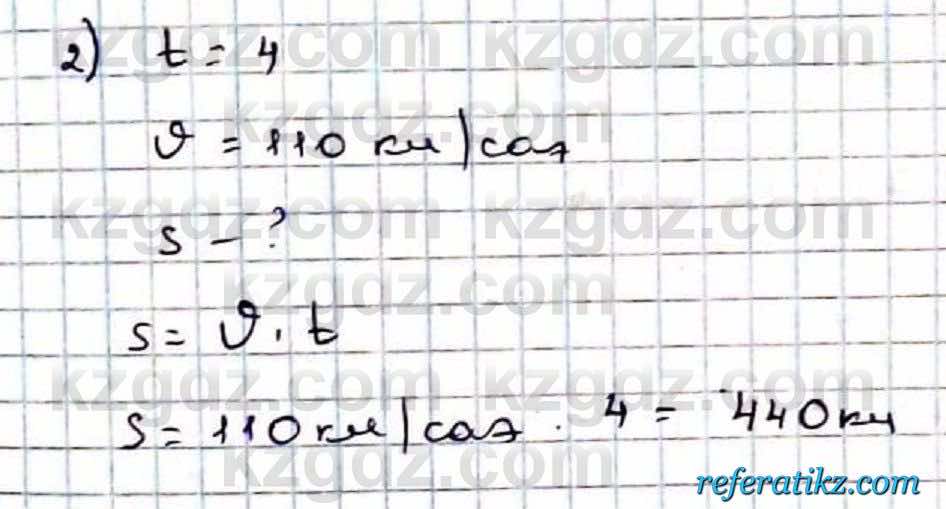 kzgdz.com kzgdz.com
2) t = 4
kzgdz.com
ϑ = 110 км/сағ
kzgdz.com kzgdz.com
s – ?
kzgdz.com
s = ϑ · t
kzgdz.com kzgdz.com
s = 110 км/сағ · 4 = 440 км
kzgdz.com
referatikz.com